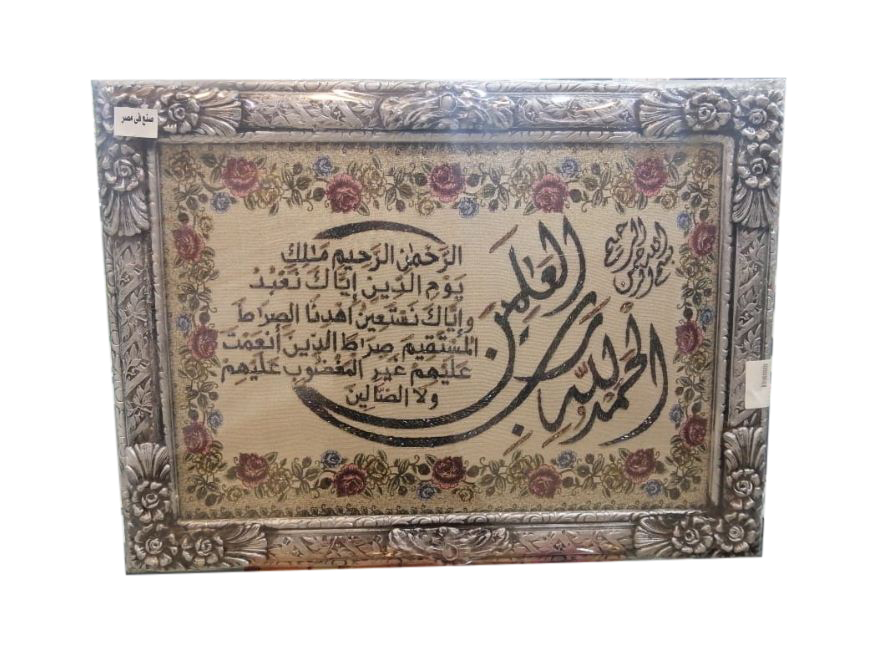 صنع في مصر
بسم الله الرحمن الرحيم
الحمد لله
رب العلمين
الرحمن الرحيم ملك
يوم الدين إياك نعبد
وإياك نستعين اهدنا الصراط
المستقيم صراط الذين أنعمت
عليهم غير المغضوب عليهم
ولا الضالين